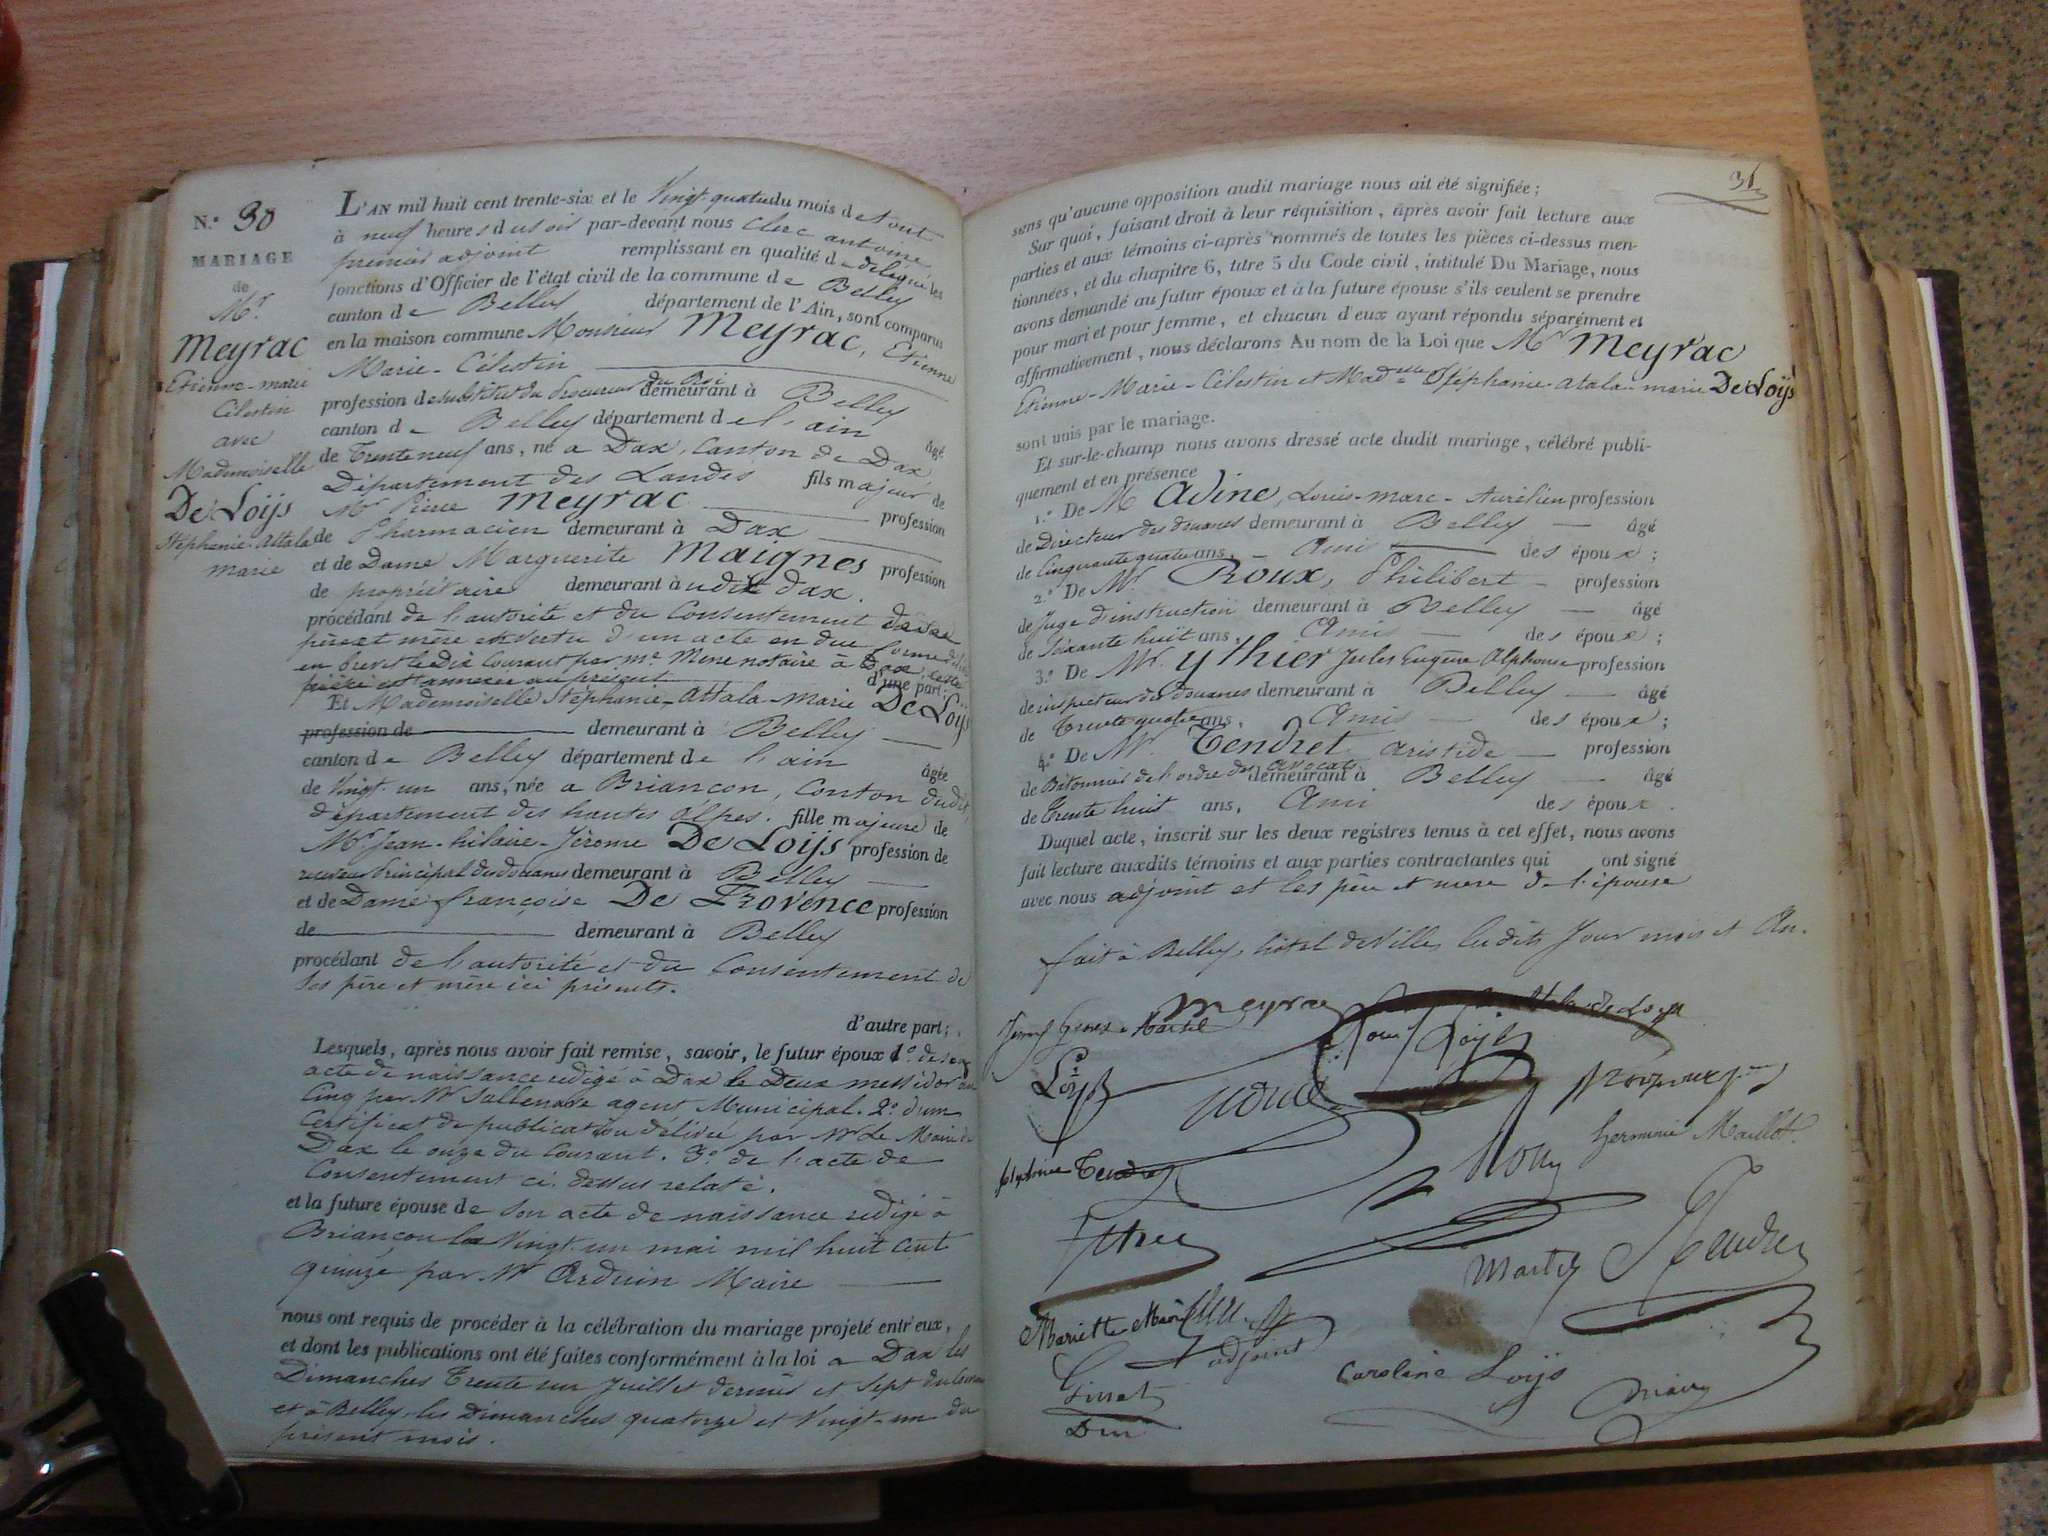 N.° 30
MARIAGE
de
Mr.
Meyrac
Etienne-marie
Célestin
avec
Mademoiselle
De Loÿs
Stéphanie-Attala
marie
L'AN mil huit cent trente-six et le Vingt-quatre du mois d'aout
à neuf heures du soir par-devant nous Clerc antoine,
premier adjoint remplissant en qualité de délégué les
fonctions d'Officier de l'état civil de la commune de Belley
canton de Belley département de l'Ain, sont comparus
en la maison commune Monsieur Meyrac, Etienne
Marie-Célestin
profession de substitut du Procureur du Roi demeurant à Belley
canton de Belley département de l'ain âgé
de Trente neuf ans, né a Dax, Canton de Dax,
Département des Landes fils majeur de
Mr. Pierre Meyrac profession
de Pharmacien demeurant à Dax
et de Dame Marguerite Maignes profession
de propriétaire demeurant à udit dax.
procédant de l'autorité et du Consentement de ses
père et mère en vertu d'un acte en due forme
en brevet le dix Courant par me. Mene notaire à Dax,
est annexée au présent d'une part;
Et Mademoiselle Stéphanie-Attala-Marie De Loÿs
profession de demeurant à Belley
canton de Belley département de l'ain âgée
de Vingt-un ans, née a Briançon, Canton dudit,
département des hautes alpes. fille majeure de
Mr. Jean-hilaire-Jérome De Loÿs profession de
receveur Principal des douanes demeurant à Belley
et de Dame françoise De Provence profession
de demeurant à Belley
procédant de l'autorité et du Consentement de
ses père et mère ici présents.
d'autre part;
Lesquels, après nous avoir fait remise, savoir, le futur époux 1.° de son
acte de naissance redigé à Dax le Deux messidor an
Cinq par Mr Sallenave agent Municipal. 2.° d'un
Certificat de publication délivré par Mr Le Maire de
Dax le onze du Courant. 3.° de l'acte de
Consentement ci-dessus relaté.
et la future épouse de son acte de naissance redigé à
Briançon le Vingt-un mai mil huit cent
quinze par Mr Arduin Maire
nous ont requis de procéder à la célébration du mariage projeté entr'eux,
et dont les publications ont été faites conformément à la loi a Dax les
Dimanches Trente un Juillet dernier et Sept du Courant
et à Belley, les Dimanches quatorze et Vingt-un du
présent mois.
31
sens qu'aucune opposition audit mariage nous ait été signifiée;
Sur quoi, faisant droit à leur réquisition, après avoir fait lecture aux
parties et aux témoins ci-après nommés de toutes les pièces ci-dessus men-
tionnées, et du chapitre 6, titre 5 du Code civil, intitulé Du Mariage, nous
avons demandé au futur époux et à la future épouse s'ils veulent se prendre
pour mari et pour femme, et chacun d'eux ayant répondu séparément et
affirmativement, nous déclarons Au nom de la Loi que Mr Meyrac
Etienne-Marie-Célestin et Madelle Stéphanie-atala-marie De Loÿs
sont unis par le mariage.
Et sur-le-champ nous avons dressé acte dudit mariage, célébré publi-
quement et en présence
1.° De M Adine, Louis-marc-Aurélien profession
de Directeur des douanes demeurant à Belley âgé
de Cinquante quatre ans, Ami des époux;
2.° De Mr. Roux, Philibert profession
de Juge d'instruction demeurant à Belley âgé
de Soixante huit ans, Ami des époux;
3.° De Mr. ythier Jules Eugène Alphonse profession
de inspecteur des douanes demeurant à Belley âgé
de Trente quatre ans, Ami des époux;
4.° De Mr. Tendret aristide profession
de Bâtonnier de l'ordre des avocats demeurant à Belley âgé
de Trente huit ans, Ami des époux.
Duquel acte, inscrit sur les deux registres tenus à cet effet, nous avons
fait lecture auxdits témoins et aux parties contractantes qui ont signé
avec nous adjoint et les père et mere de l'épouse
fait à Belley, hôtel de Ville, ledits Jour mois et An.
Meyrac
Atala de Loÿs
Loÿs
Adine
Roux
herminie Maillot
Tendret
Ythier
Martin
Tendret
Mariette
adjoint
Caroline Loÿs